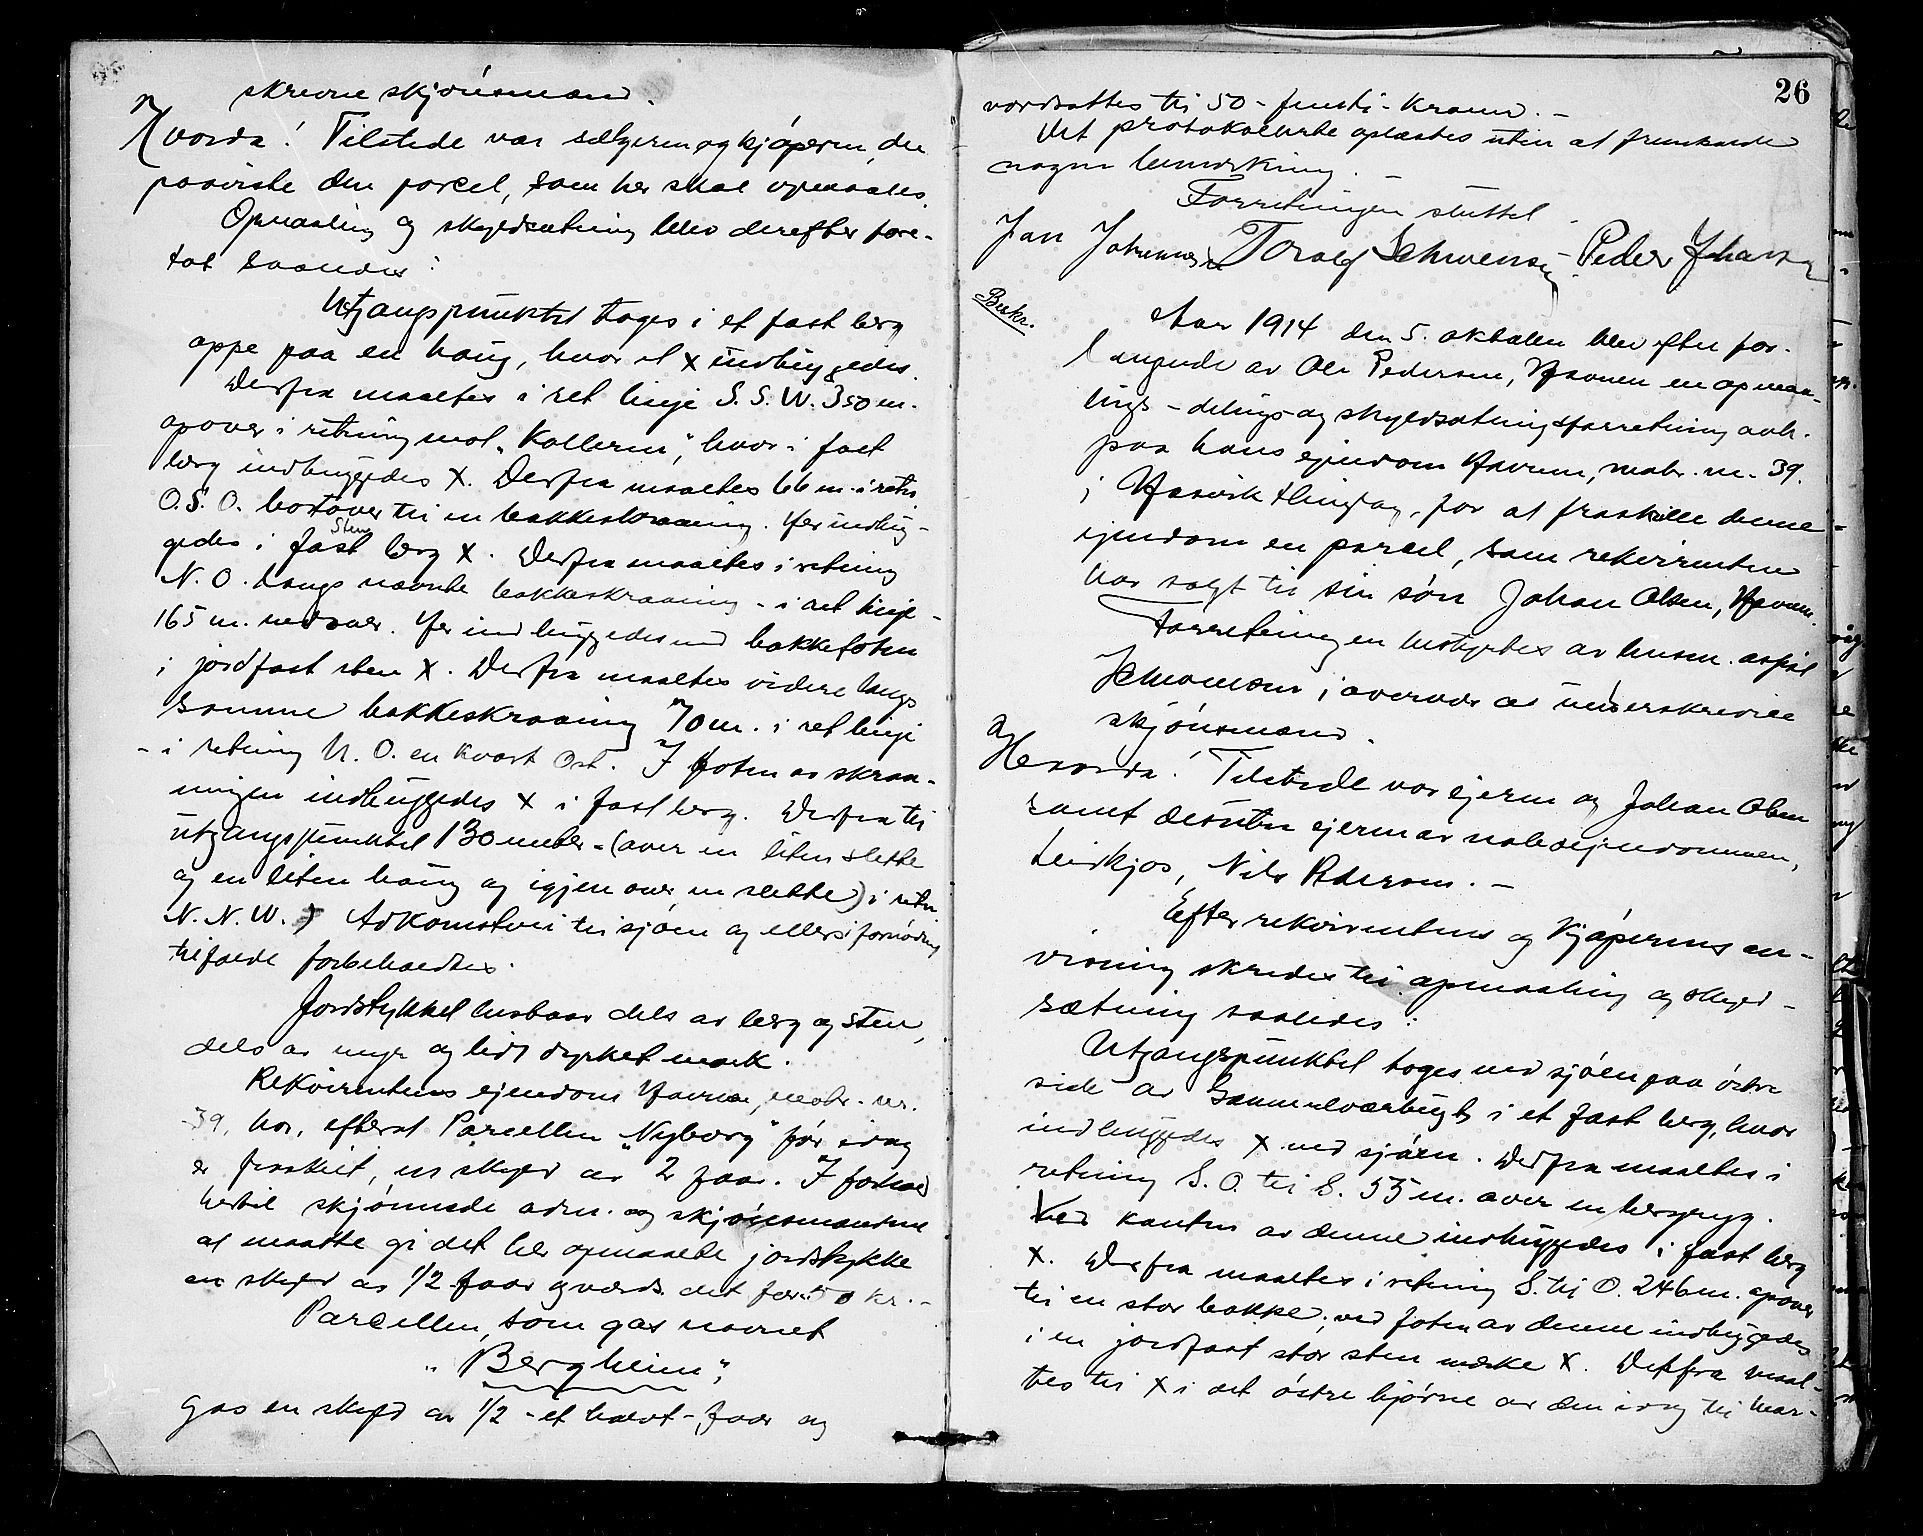 skrevne skjønsmænd.
Hvorda! Tilstede var sælgeren og kjøperen, der
paaviste den parcel, som her skal opmaales.
Opmaaling og skyldsætning blev derefter fore-
tat saaledes:
Utgangspunktet toges i et fast berg
oppe paa en haug, hvor et x indhuggedes.
Derfra maaltes i ret linje S. S. W. 350 m.
opover i retning mot "Kolleren", hvor i fast
berg indhuggedes x. Derfra maaltes 66 m. i retn.
O. S. O. bortover til en bakkeskraaning. Her indhug-
gedes i fast berg x. Derfra maaltes i retning
N. O. langs nævnte bakkeskraaning - i ret linje -
165 m. nedover. Her indhuggedes ved bakkefoten
i jordfast sten x. Derfra maaltes videre langs
samme bakkeskraaning 70 m. i ret linje
- i retning N. O. en kvart Ost. I foten av skraa-
ningen indhuggedes x i fast berg. Derfra til
utgangspunktet 130 meter - (over en liten slette
og en liten haug og igjen over en slette) i retn.
N. N. W. Adkomstvei til sjøen og ellers i fornødne
tilfælde forbeholdtes.
Jordstykket bestaar dels av berg og sten,
dels av myr og litt dyrket mark.
Rekvirentens ejendom Havnen, matr. nr.
39, har, efterat Parcellen "Nyborg" før idag
er fraskilt, en skyld av 2 øre. I forhold
hertil skjønnede adm. og skjønsmændene
at maatte gi det her opmaalte jordstykke
en skyld av 1/2 øre og værds. det for 50 kr. -
Parcellen, som gas navnet
"Bergheim",
gas en skyld av 1/2 - et halvt - øre og
26
værdsattes til 50 - femti - kroner. -
Det protokollerte oplæstes uten at fremkalde
nogen bemærkning. -
Forretningen sluttet.
Jan Johannesen Toralf Schwensen Peder Johansen
Beskr.
Aar 1914 den 5. oktober blev efter for-
langende av Ole Pedersen, Havnen en opmaa-
lings - delings- og skyldsætningsforretning avh.
paa hans ejendom Havnen, matr. nr. 39.
i Hasvik tinglag, for at fraskille denne
ejendom en parcel, som rekvirenten
har solgt til sin søn Johan Olsen, Havnen.
Forretningen bestyrtes av lensm. aspir.
i overvær av underskrevne
skjønsmænd.
Hvorda! Tilstede var ejeren og Johan Olsen
samt desuten ejeren av naboejendommen,
Nils Pedersen. -
Efter rekvirentens og kjøperens an-
visning skredes til opmaaling og skyld-
sætning saaledes:
Utgangspunktet toges ved sjøen paa østre
side av i et fast berg, hvor
indhuggedes x ved sjøen. Derfra maaltes i
retning S. O. til S. 55 m. over en bergryg.
Ved kanten av denne indhuggedes i fast berg
x. Derfra maaltes i retning S. til O. 246 m. opover
til en stor bakke; ved foten av denne indhuggedes
i en jordfast stor sten merke x. Derfra maal-
tes til x i det østre hjørne av den idag til Mar-